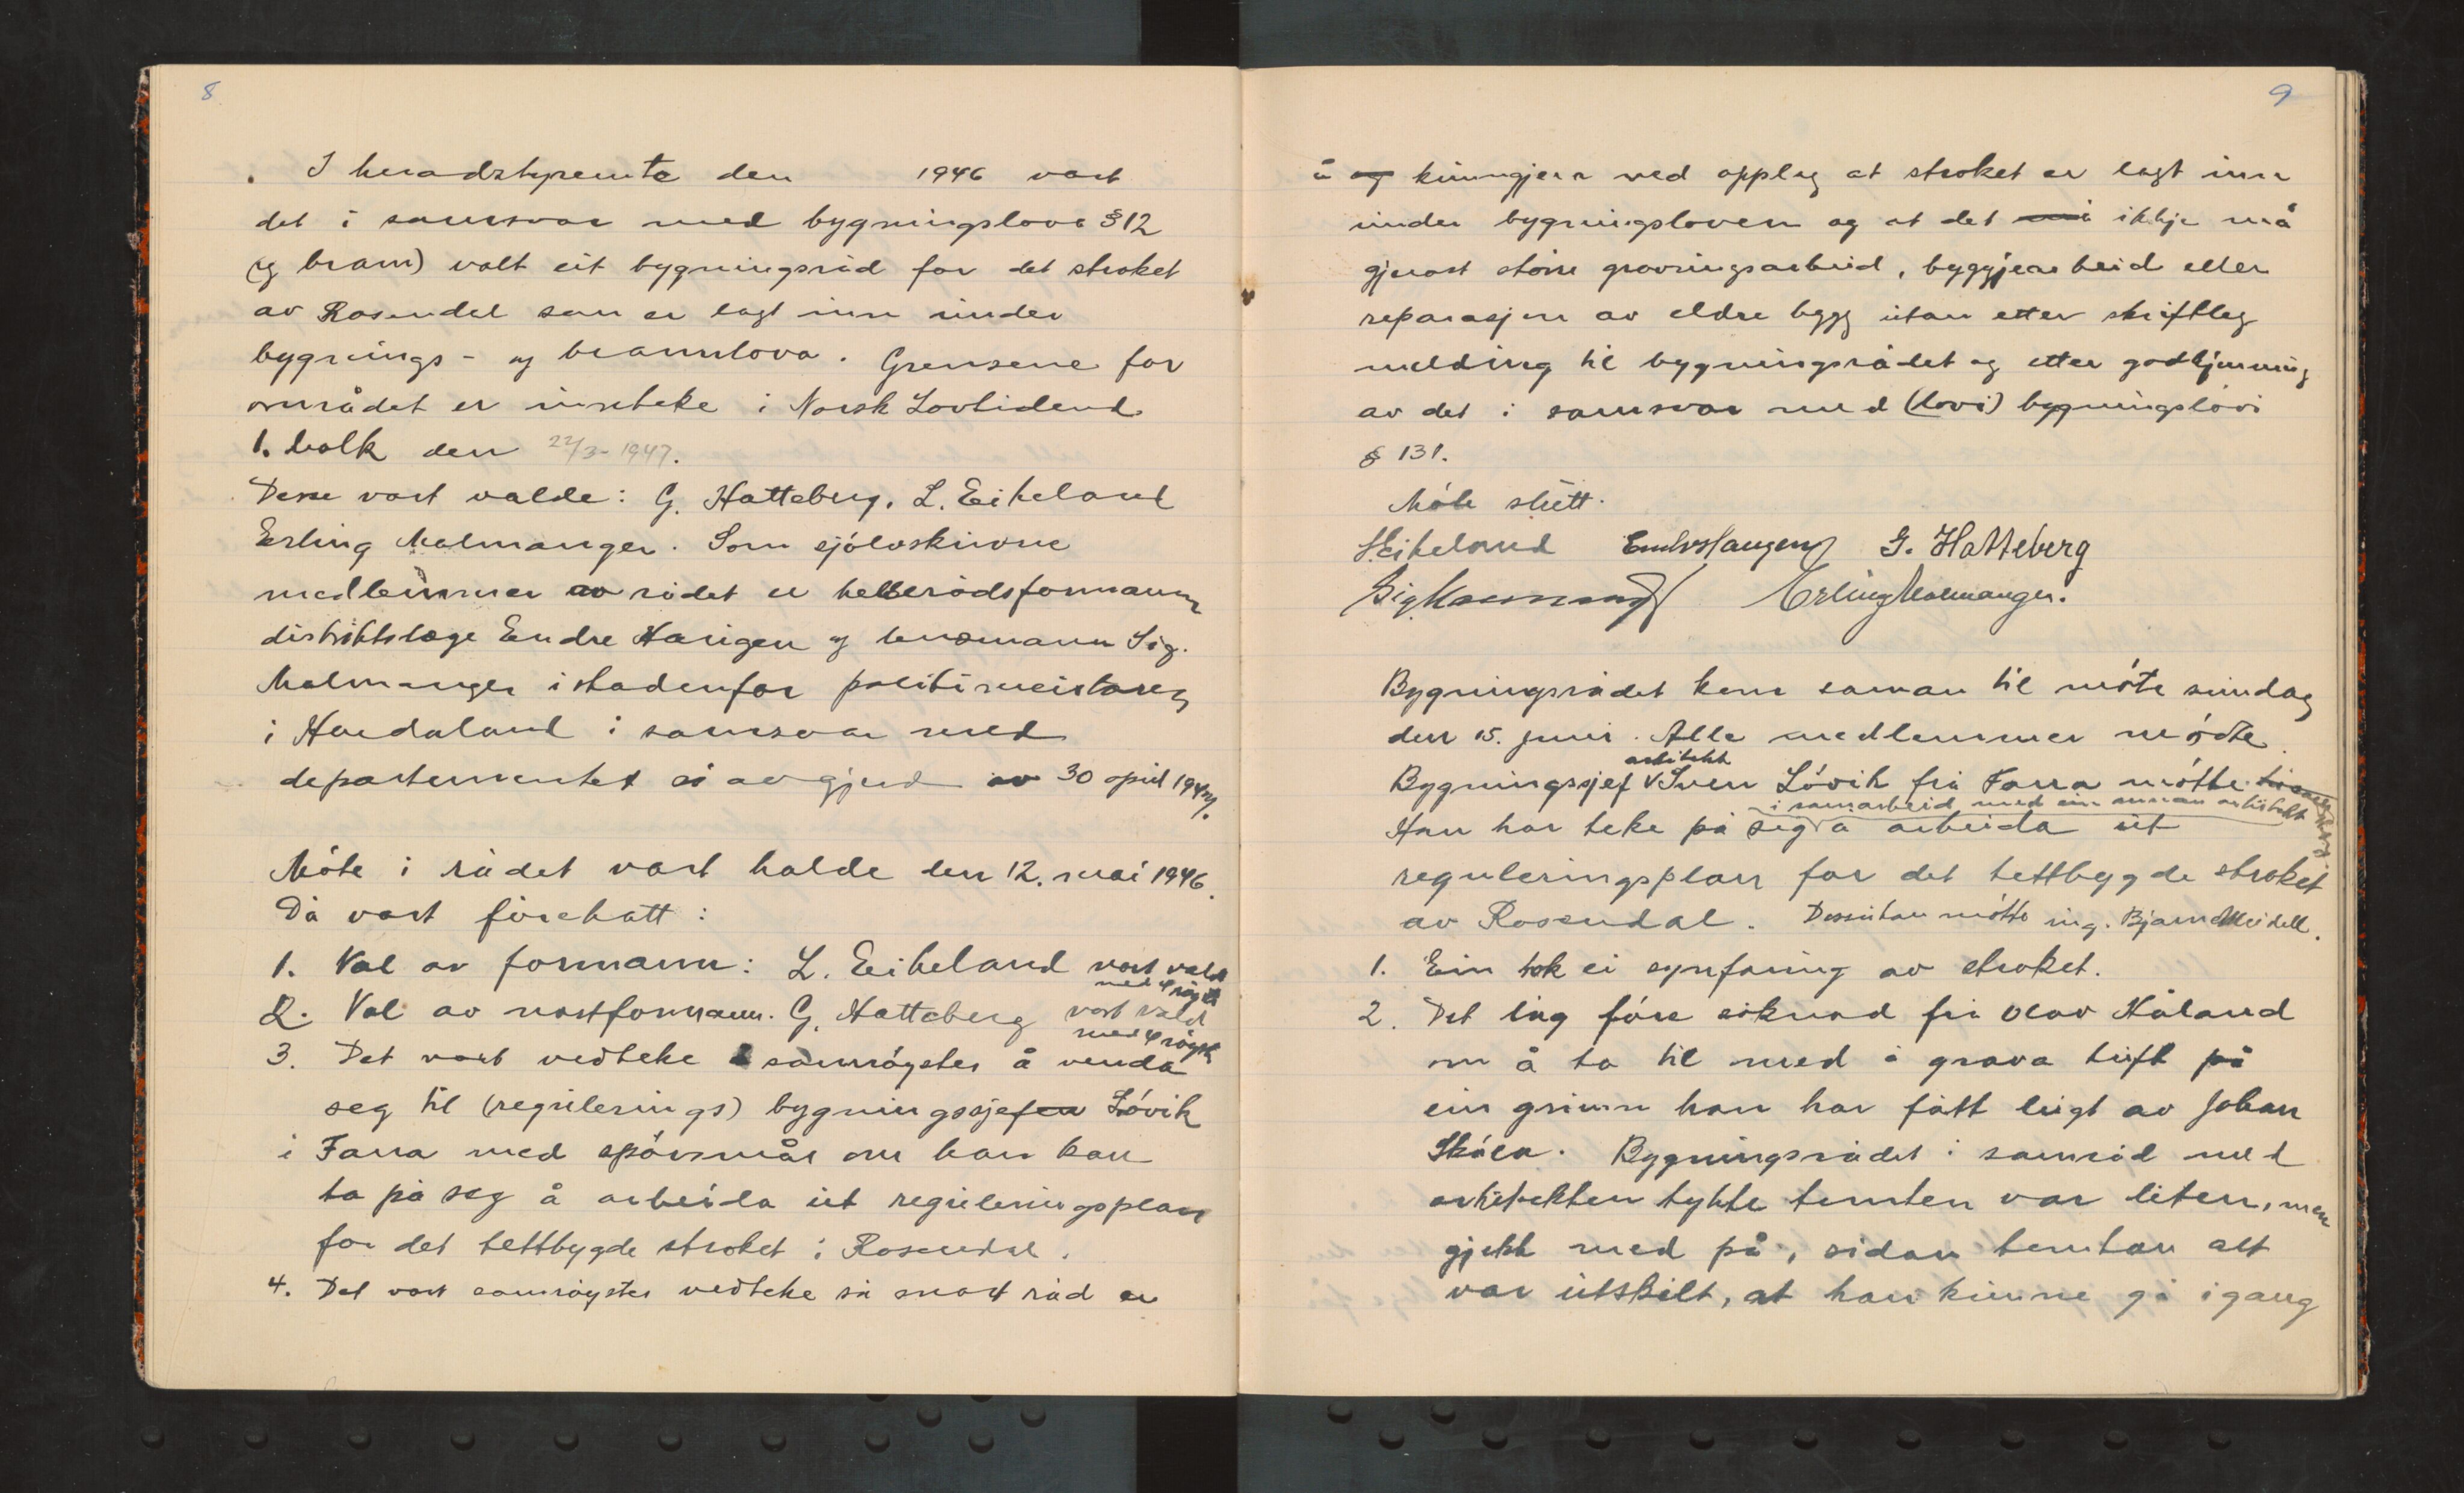 8
I heradstyremøte den 1946 vart
det i samsvar med bygningslova § 12
(og brann) valt eit bygningsråd for det stroket
av Rosendal som er lagt inn under
bygnings- og brannlova. Grensene for
området er innteke i Norsk Lovtidend
1. bolk den 22/3-1947.
Desse vart valde: G. Hatteberg, L. Eikeland
Erling Malmanger. Som sjølvskrivne
medlemmer av rådet er helserådsformann
distriktslæge Endre Haugen og lensmann Sig.
Malmanger istadenfor politimeistaren
i Hordaland i samsvar med
departementet si avgjerd av 30 april 1947.
Møte i rådet vart halde den 12. mai 1946.
Då vart førehatt:
1. Val av formann: L. Eikeland vart vald
med 4 røyst
2. Val av nestformann. G. Hatteberg vart vald
med 4 røyst
3. Det vart vedteke samrøystes å venda
seg til (regulerings) bygningssjefen Løvik
i Fana med spørsmål om han kan
ta på seg å arbeida ut reguleringsplan
for det tettbygde stroket i Rosendal.
4. Det vart samrøystes vedteke så snart råd er
9
å og kunngjera ved opplag at stroket er lagt inn
under bygningsloven og at det må ikkje må
gjerast større gravingsarbeid, byggjearbeid eller
reparasjon av eldre bygg utan etter skriftleg
melding til bygningsrådet og etter godkjenning
av det i samsvar med (lovi) bygningslovi
§ 131.
Møte slutt.
L Eikeland Endre Haugen G. Hatteberg
Sig Malmanger Erling Malmanger.
Bygningsrådet kom saman til møte sundag
den 15. juni. Alle medlemmer møtte.
arkitekt
Bygningssjef V Sven Løvik frå Fana møtte
i samarbeid med ein annan arkitekt
Han har teke på seg å arbeida ut
reguleringsplan for det tettbygde stroket
av Rosendal. Dessutan møtte ing. Bjarne Meidell.
1. Ein tok ei synfaring av stroket.
2. Det låg føre søknad frå Olav Håland
om å ta til med å grava tuft på
ein grunn han har fått leigt av Johan
Skåla. Bygningsrådet i samråd med
arkitekten tykte tomten var liten, men
gjekk med på, sidan tomtan alt
var utskilt, at han kunne gå igang